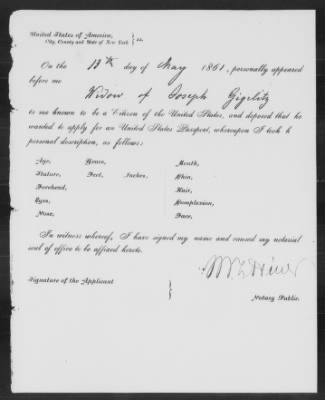 United States of America,
City, County and State of New York } ss.
On the 13th day of May 1861, personally appeared
before me
Widow of Joseph Gigelitz
to me known to be a Citizen of the United States, and deposed that he
wanted to apply for an United States Passport, whereupon I took h
personal description, as follows:
Age, Years, Mouth,
Stature, Feet, Inches, Chin,
Forehead, Hair,
Eyes, Complexion,
Nose, Face,
In witness whereof, I have signed my name and caused my notarial
seal of office to be affixed hereto.
Signature of the Applicant
Notary Public.